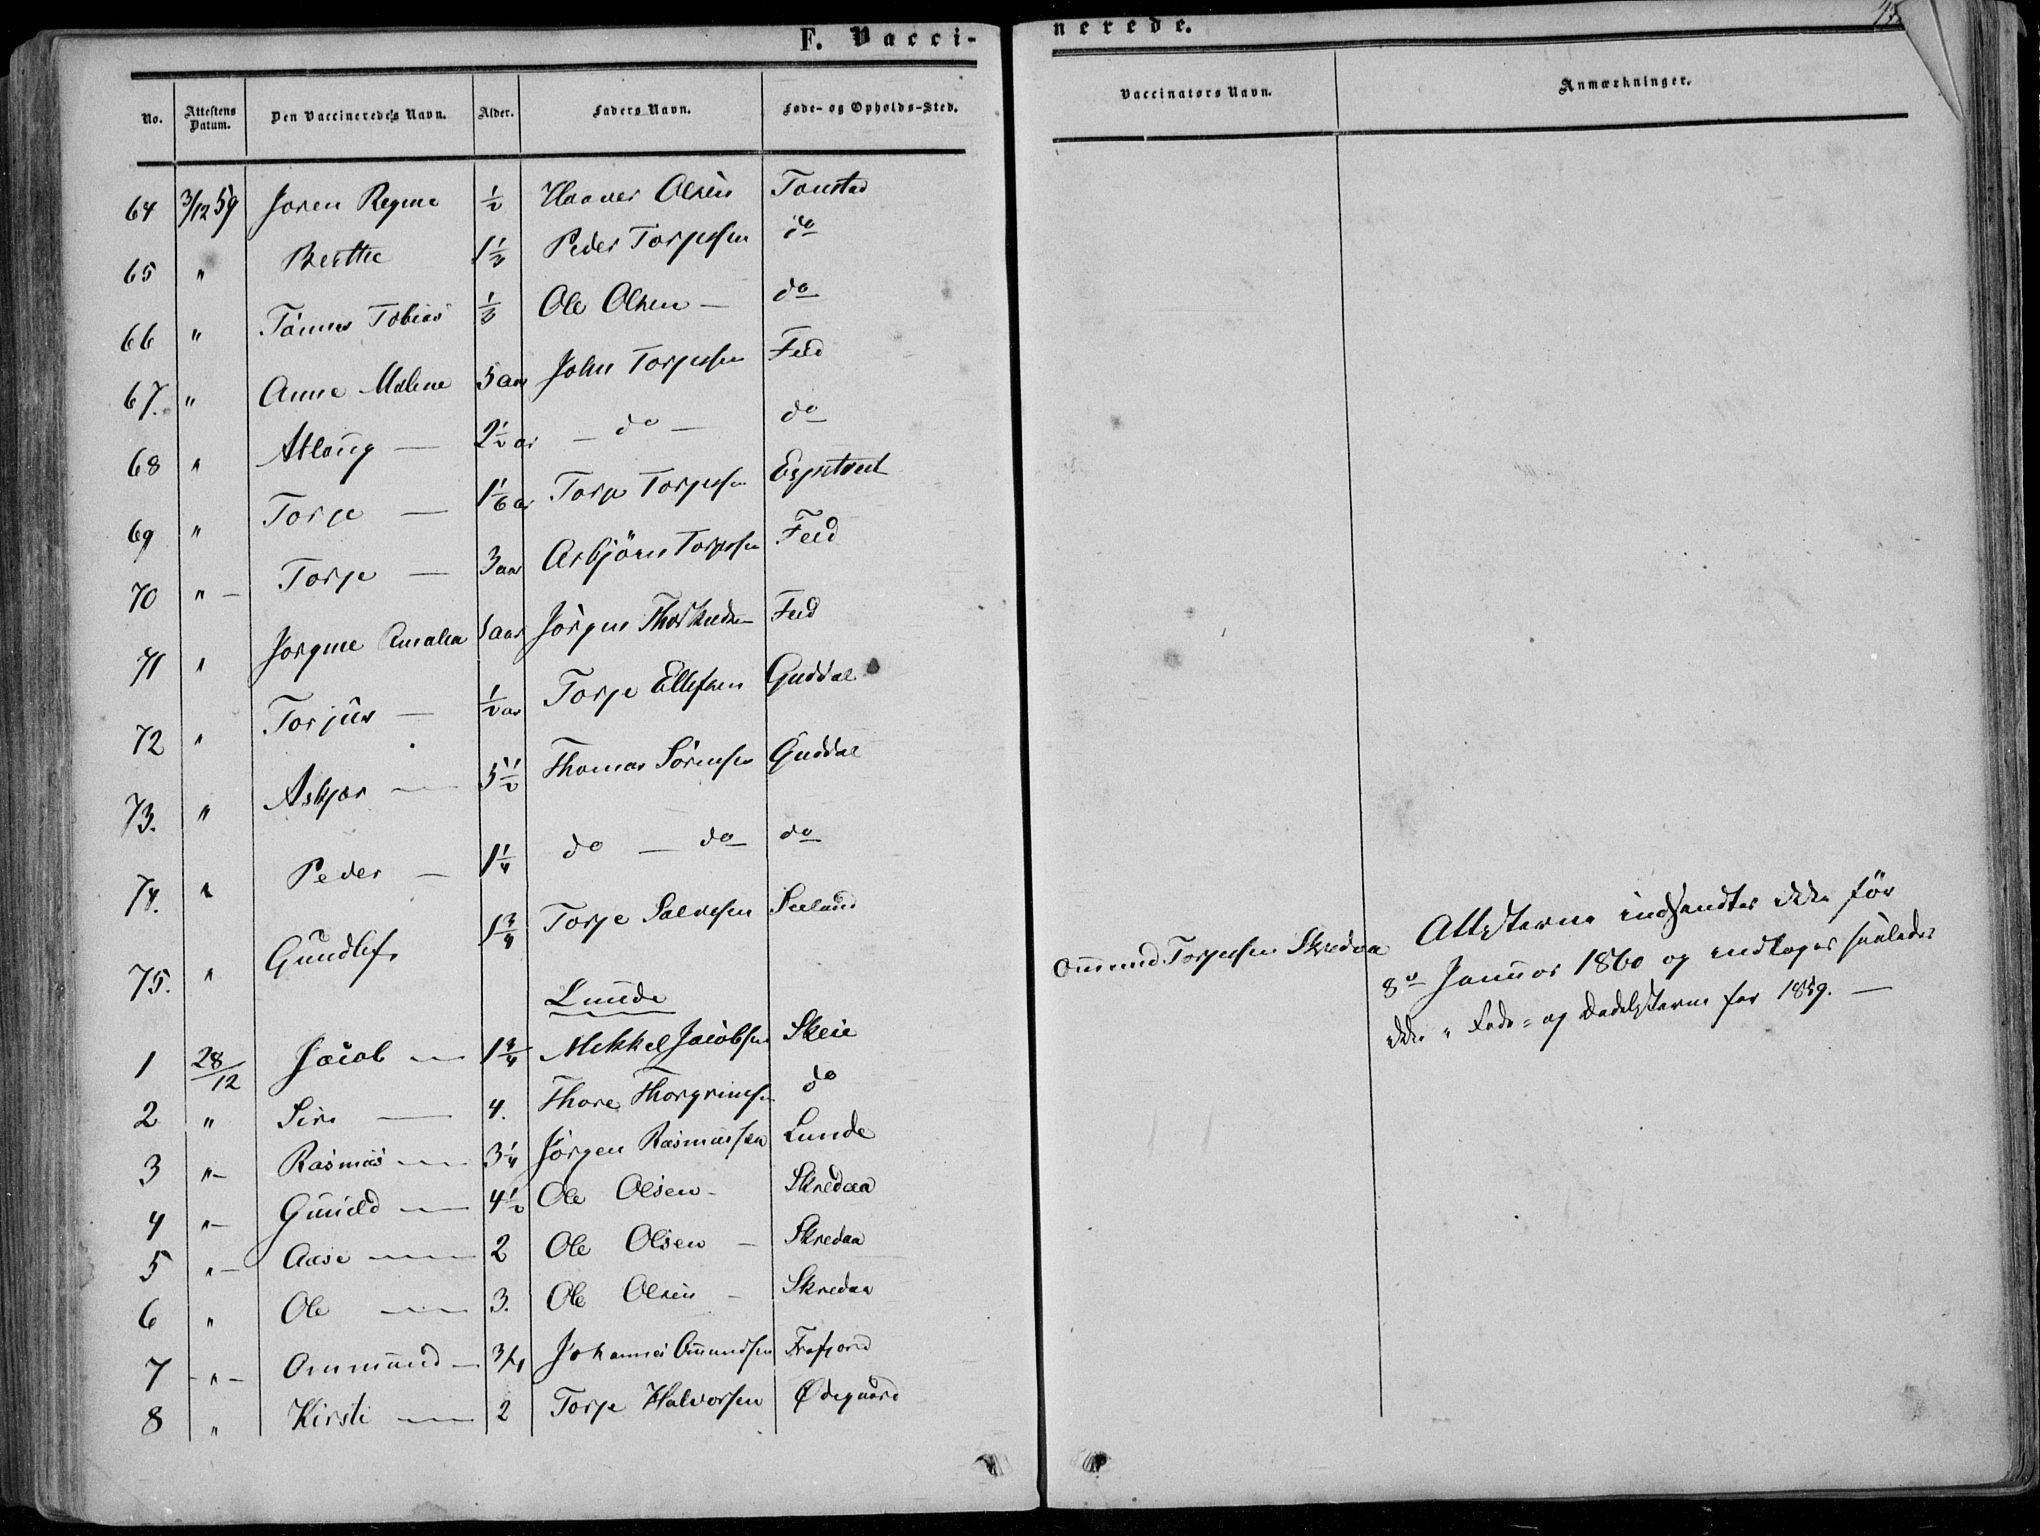 F. Vaccinerede.
No. Attestens Datum. Den Vaccineredes Navn. Alder. Faders Navn. Føde- og Opholds-Sted. Vaccinators Navn. Anmærkninger.
64 3/12 59 Joren Regine ½ Haaver Olsen Tonstad
65 " Berthe 1½ Peder Torjussen do
66 " Tønnes Tobias ½ Ole Olsen — do
67. " Anne Malene 5 aar John Torjussen Feed
68 " Atlaug — 2½ ar — do — do
69 " Torje — 1 1/6 ar Torje Torjussen Espetveit
70 " — Torje — 3 aar Asbjörn Torjussen Feed
71 " Jorgine Amalea aar Jørgen Feed
72 " Torjus — ½ aar Torje Ellefsen Guddal
73. " Askjær — 5½ Thomas Sørensen Guddal
74. " Peder — 1¼ do — do do
75. " Gundlef. 1¾ Torje Salvesen Seeland Ommund Torjussen Skredaa Attesterne indsendtes ikke før
8de Januar 1860 og indtages saaledes
ikke i Føde- og Dødslisterne for 1859. —
Lunde
1 28/12 Jacob — 1¾ Mikkel Jacobsen Skeie
2 " Siri — 4. Thore Thorgrimsen do
3 " - Rasmus — 3¼ Jørgen Rasmussen Lunde
4 " - Gunild — 4½ Ole Olsen - Skredaa
5 " - Aase — 2 Ole Olsen — Skredaa
6 " Ole — 3. Ole Olsen — Skredaa
7 - " - Ommund — 3/4 Johannes Ommundsen Frafjord
8 " Kirsti — 2 Torje Halvorsen Ødegaard